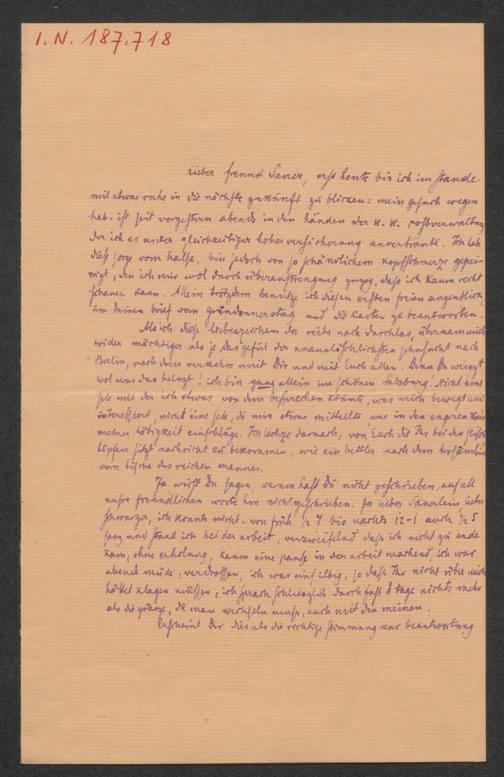 I. N. 187.718
Lieber freund Sauer, erst heute bin ich im stande
mit etwas ruhe in die nächste zukunft zu blicken: mein gesuch wegen
hab. ist seit vorgestern abends in den händen der k. k. postverwaltung
der ich es unter gleichzeitiger hoher versicherung anvertraute. Ich habe
diese sorge vom halse, bin jedoch von so schändlichem kopfschmerze gepei-
nigt, den ich mir wol durch überanstrengung zuzog, dass ich kaum recht
schauen kann. Allein trotzdem benutze ich diesen ersten freien augenblick,
um deinen brief vom gründonnerstag und die karten zu beantworten.
Als ich diese liebeszeichen der reihe nach durchlas, übernam mich
wider mächtiger als je das gefül der unauslöschlichsten sehnsucht nach
Berlin, nach dem verkehre mit Dir und mit Euch allen. Denn Du weisst
wol was das besagt: ich bin ganz allein im schönen Salzburg. Nicht eine
sele mit der ich etwas von dem besprechen könnte, was mich bewegt und
interessiert, nicht eine sele, die mir etwas mitteilte was in den engeren kreis
meiner tätigkeit einschlüge. Ich lechze darnach, von Euch die Ihr bei den
töpfen sitzt nachricht zu bekommen, wie ein bettler nach den brosämlein
vom tische des reichen mannes.
Ja wirst Du sagen, warum hast Du nicht geschrieben, auf all
unsre freundlichen worte hin nicht geschrieben. Ja lieber Sauerlein lieber
ich konnte nicht. von früh ½ 7 bis nachts 12-1 auch ½ 5
sass und stand ich bei der arbeit, verzweifelnd dass ich nicht zu ende
kam, ohne erholung, kaum eine pause in der arbeit machend ich war
abends müde, verdrossen, ich war einsilbig, so dass Ihr nicht über mich
hättet klagen müssen; ich sprach schliesslich durch fast 8 tage nichts mehr
als die grüsse, die man wechseln muss, auch mit den meinen.
Erscheint Dir dies als die richtige stimmung zur beantwortung